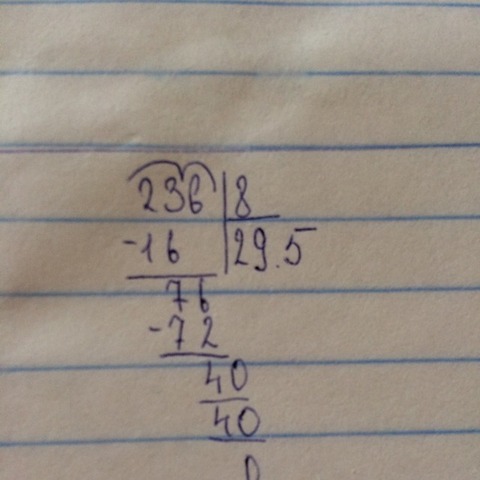 236 8
-16 29.5
76
-72
40
40
0